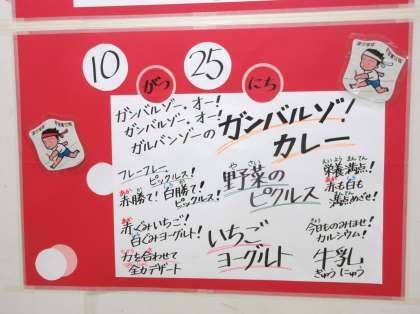 10 がつ 25 にち
ガンバルゾー、オー!
ガンバルゾー、オー!
ガルバンゾーの
ガンバルゾ!
カレー
フレーフレー
ピックルス!
赤勝て!白勝て!
ピックルス!
野菜の
やさい
ピクルス
栄養満点!
えいようまんてん
赤も白も
満点めざせ!
赤ぐみいちご!
白ぐみヨーグルト!
力を合わせて
全力デザート
いちご
ヨーグルト
今日ものみほせ!
カルシウム!
牛乳
ぎゅうにゅう